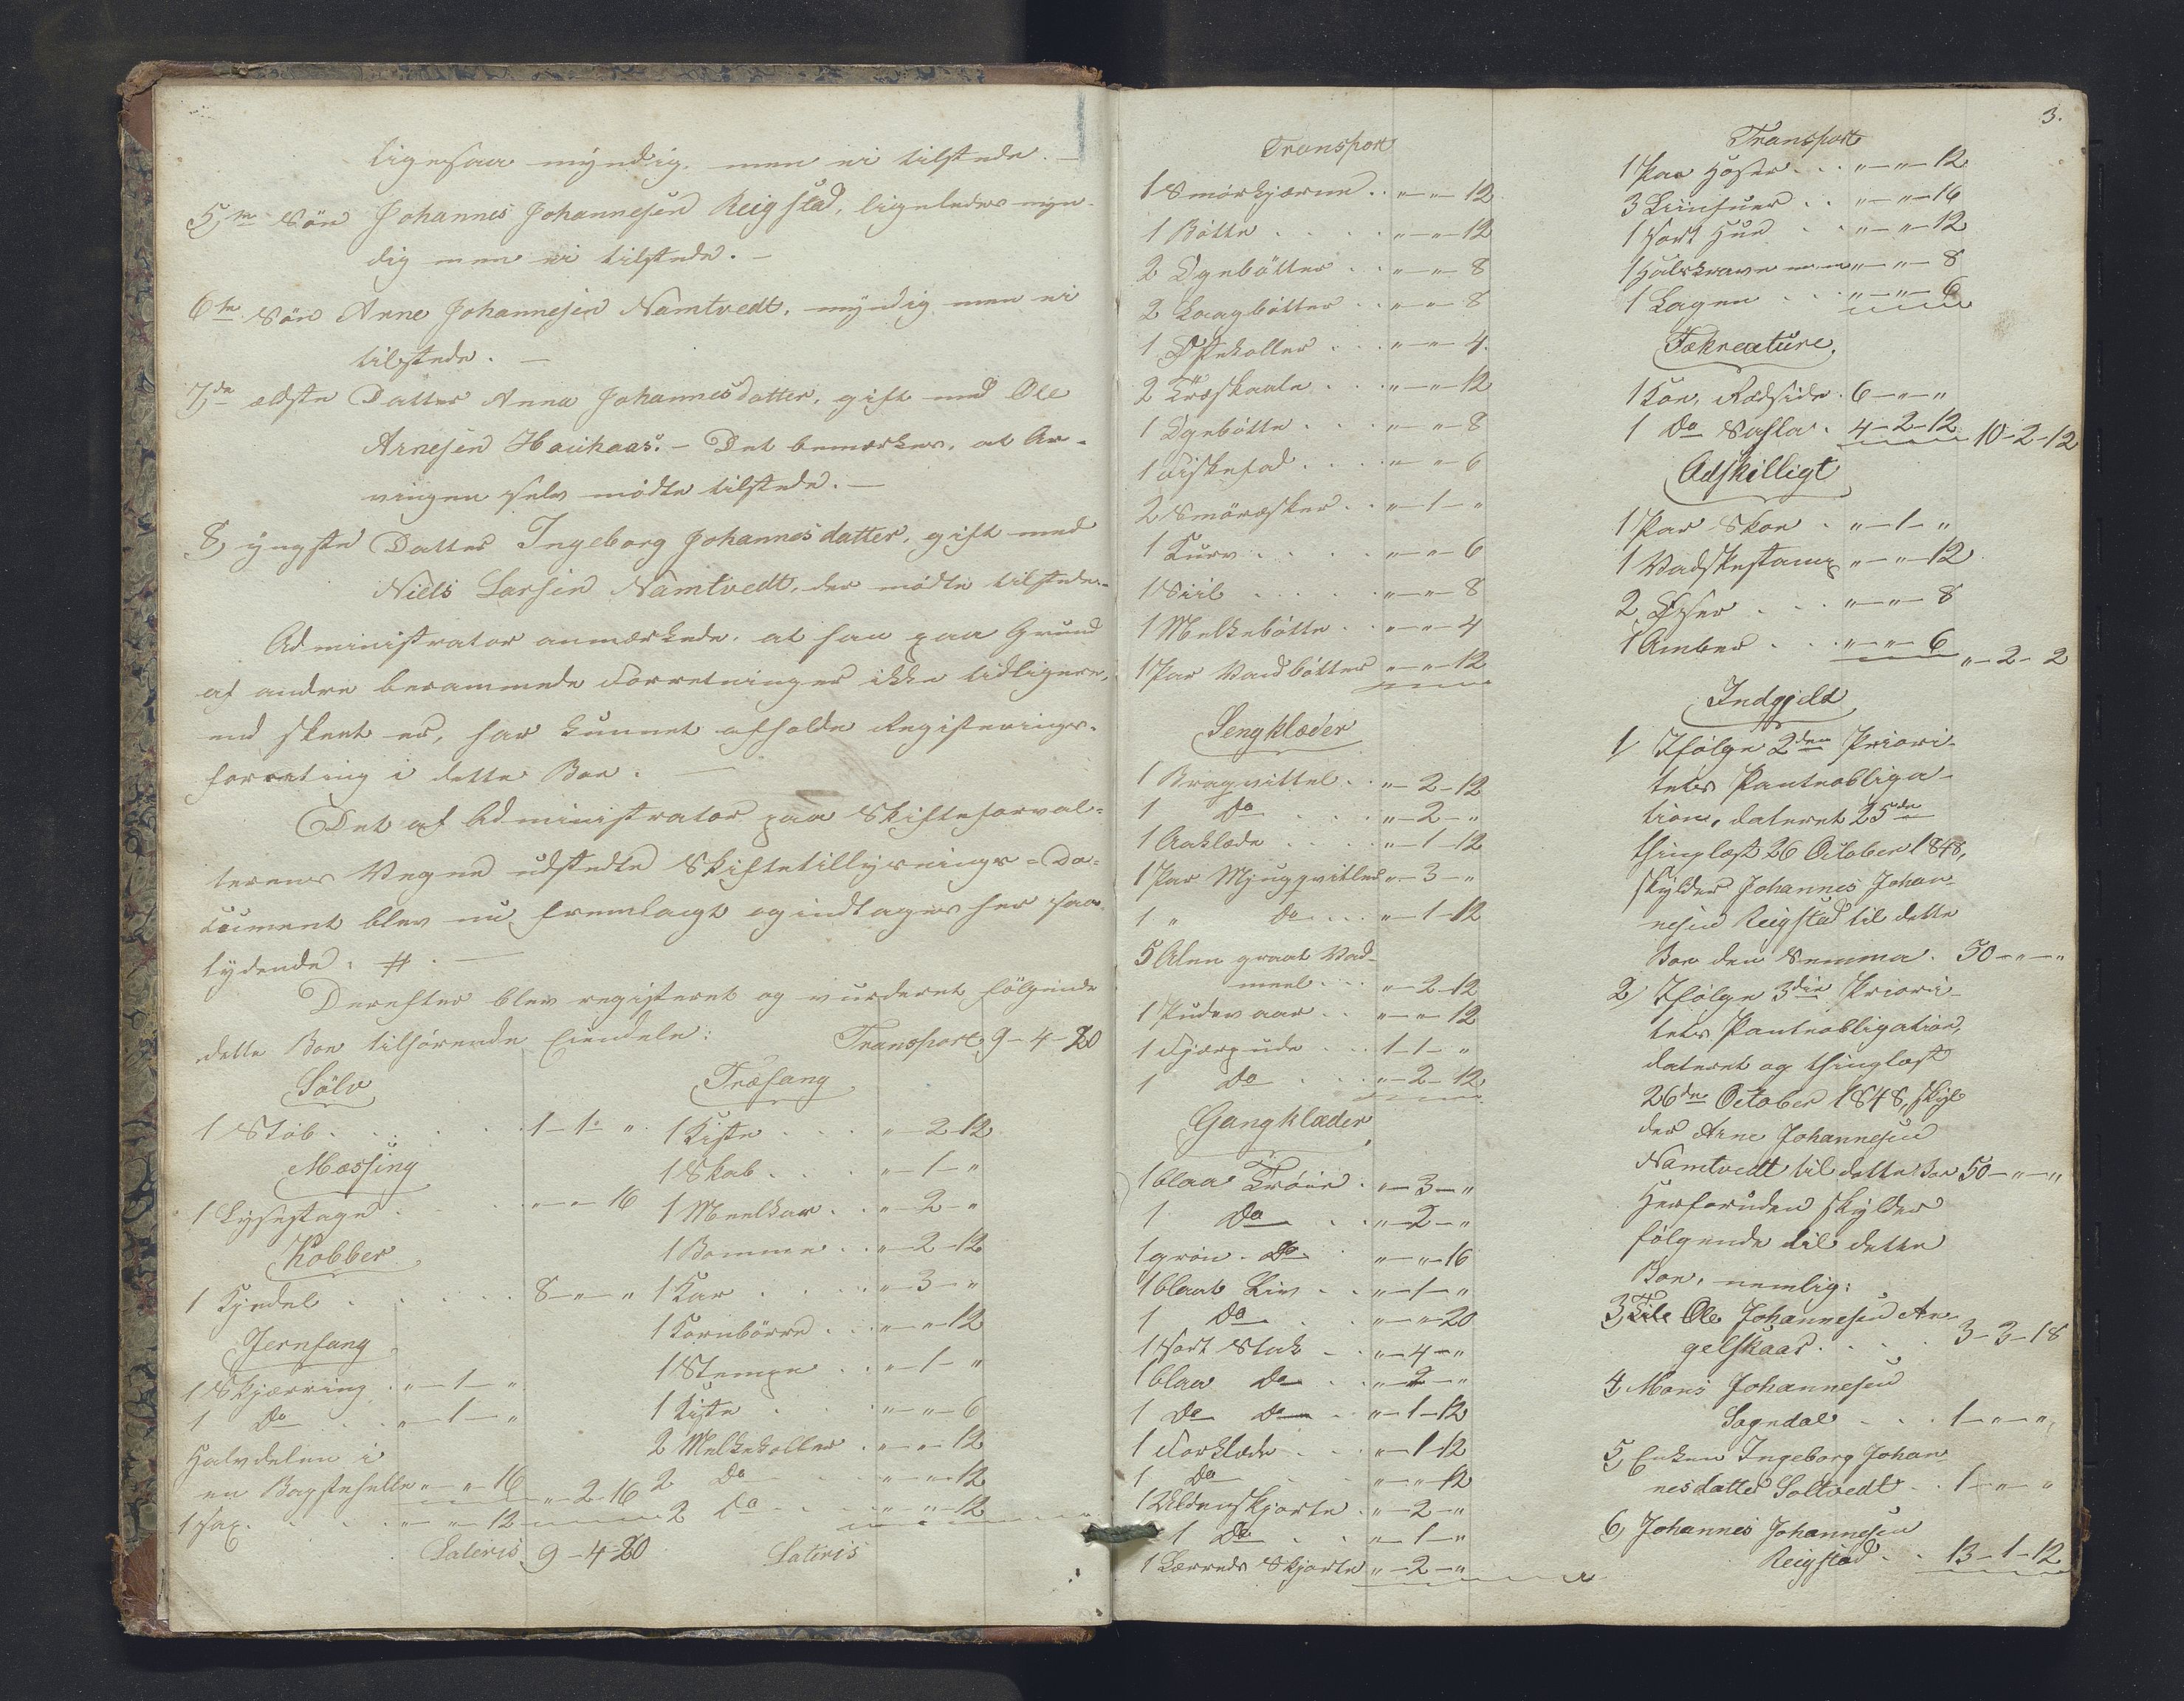 ligesaa myndig, men ei tilstede. —
5, te Søn Johannes Johannesen Reigstad, ligeledes myn-
dig men ei tilstede. —
6te Søn Arne Johannesen Namtvedt, myndig men ei
tilstede. —
7, de ældste Datter Anna Johannesdatter, gift med Ole
Arnesen Houkaas. — Det bemærkes, at Ar-
vingen selv mødte tilstede. —
8, yngste Datter Ingeborg Johannesdatter, gift med
Niels Larsen Namtvedt, der mødte tilstede. —
Administrator anmærkede, at han paa Grund
af andre berammede Forretninger ikke tidligere,
end skeet er, har kunnet afholde Registerings-
forretning i dette Boe. —
Det af Administrator paa Skifteforval-
terens Vegne udstedte Skiftetillysnings-Do-
cument blev nu fremlagt og indtages her saa-
lydende: # . —
Derefter blev registeret og vurderet følgende
dette Boe tilhørende Eiendele:
Sølv
1 Støb . . . . 1 - 1 - "
Messing
1 Lysestage . . . " - " - 16
Kobber
1 Kjedel . . . . . 8 - " - "
Jernfang
1 Skjærring . " - 1 - "
1 Do . . " - 1 - "
Halvdelen i
en Bagstehelle " - " 16 " - 2 - 16
1 Sax . . . . " - " 12
Lateris 9 - 4 - 20
Transport 9 - 4 - 20
Træfang
1 Kiste . . . " - 2 - 12
1 Skab . . . " - 1 - "
1 Meelkar . . " - 2 - "
1 Bomme . . " - 2 - 12
1 Kar . . . . " - 3 - "
1 Kornbørre . . " - " - 12
1 Stampe . . " - 1 - "
1 Kiste . . . " - " - 6
2 Melkekoller . " - " - 12
2 Do . . . " - " - 12
2 Do . . . " - " - 12
Lateris
Transport
1 Smørkjærne . . " - " - 12
1 Bøtte . . . . " - " - 12
2 Øgebøtter . . " - " - 8
2 Laagbøtter . . " - " - 8
1 Østekoller . . . " - " - 4
2 Træskaale . . . " - " - 12
1 Øgebøtte . . . " - " - 8
1 Fiskefad . . . " - " - 6
2 Smøræsker . . " - 1 - "
1 Kurv . . . . " - " - 6
1 Siil . . . . . " - " - 8
1 Melkebøtte . . " - " - 4
1 Par Vandbøtter " - " - 12
Sengklæder
1 Bragvittel . . " - 2 - 12
1 do . . . " - 2 - "
1 Aaklæde . . . . " - 1 - 12
1 Par Mjuggvitler " - 3 - "
1 " do . . . " - 1 - 12
5 Alen graat Vad-
meel . . . " - 2 - 12
1 Pudevaar . . " - " - 12
1 Fjærpude . . . 1 - 1 - "
1 Do . . . " - 2 - 12
Gangklæder
1 blaa Trøie . " - 3 - "
1 Do . . " - 2 - "
1 grøn . do . " - " - 16
1 blaat Liv . . " - 1 - "
1 Do . . " - " - 20
1 sort Stak . . " - 4 - "
1 blaa Do . . " - 2 - "
1 Do Do . . " - 1 - 12
1 Forklæde . . . " - 1 - 12
1 Do . . " - " - 12
1 Uldenskjorte . " - 2 - "
1 Do . . " - 1 - "
1 Lærreds Skjorte " - 2 - "
3.
Transport
1 Par Hoser . . . " - " - 12
3 Liinhuer . . " - " - 16
1 sort Hue . . " - " - 12
1 Halskrave " - " - 8
1 Lagen . . . " - " - 6
Fækreature
1 Koe, Rødside . 6 - " - "
1 Do Sasla . 4 - 2 - 12 10 - 2 - 12
Adskilligt
1 Par Skoe . " - 1 - "
1 Vadskestamp " - " - 12
2 Øxer . . . " - " - 8
1 Amber . . . " - " - 6 " - 2 - 2
Indgjeld
1/ Ifølge 2den Priori-
tets Panteobliga-
tion, dateret 25de
thinglæst 26 October 1848,
skylder Johannes Johan-
nesen Reigstad til dette
Boe den Summa . 50 - " - "
2/ Ifølge 3die Priori-
tets Panteobligation,
dateret og thinglæst
26de October 1848, skyl-
der Arne Johannesen
Namtvedt til dette Boe 50 - " - "
Herforuden skylder
følgende til dette
Boe, nemlig:
3, Ole Johannesen An-
gelskaar . . . . 3 - 3 - 18
4, Mons Johannesen
Sagedal . . . 1 - " - "
5, Enken Ingeborg Johan-
nesdatter Soltvedt . . 1 - " - "
6, Johannes Johannesen
Reigstad . . 13 - 1 - 12